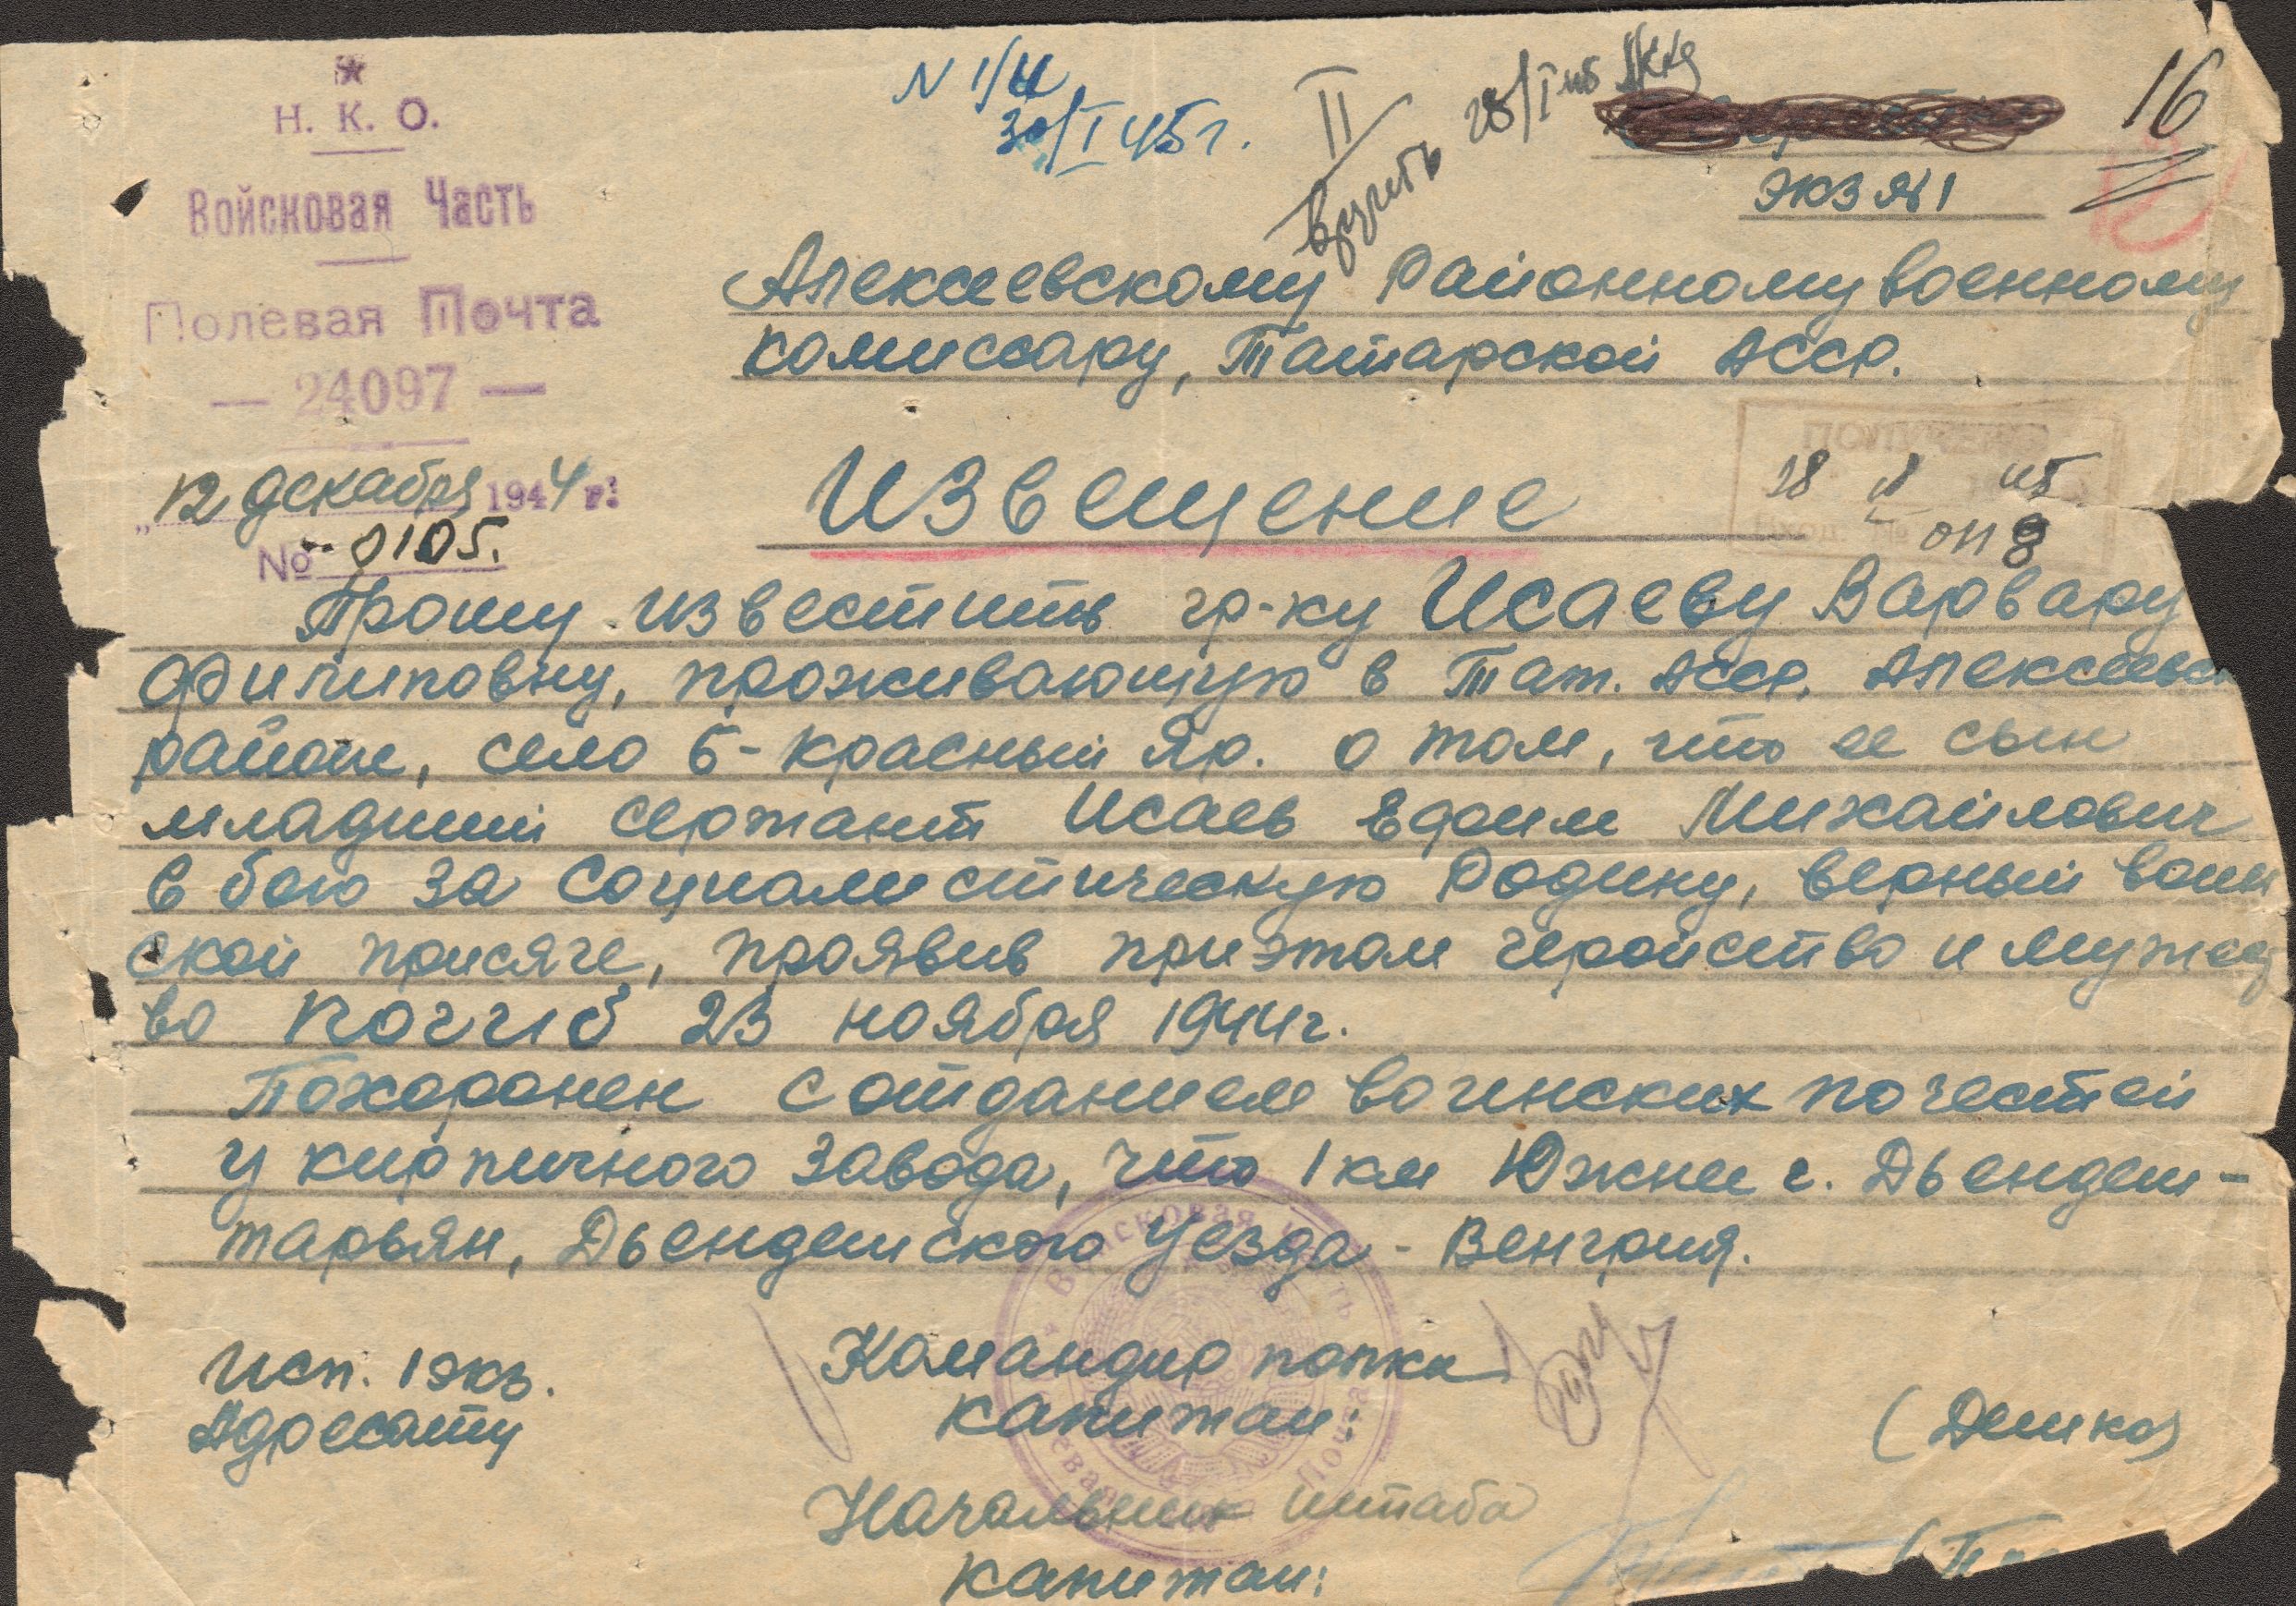 Н. К. О.
Войсковая Часть
Полевая Почта
— 24097 —
12 декабря 1944 г.
№ 0105.
N 1/и
30/I 45 г.
II
вручить 28/I 45
16
экз №1
Алексеевскому Районному военному
комиссару, Татарской АССР.
Извещение
28 II 45
Вход. № 0118
Прошу известить гр-ку Исаеву Варвару
Филиповну, проживающую в Тат. АССР. Алексеевск
районе, село Б-Красный Яр. о том, что ее сын
младший сержант Исаев Ефим Михайлович
в бою за Социалистическую Родину, верный воин
ской присяге, проявив приэтом геройство и мужест
во погиб 23 ноября 1944г.
Похоронен с отданием воинских почестей
у кирпичного завода, что 1 км Южнее г. Дьендеш-
тарьян, Дьендешского уезда - Венгрия.
Исп. 1 экз.
Адресату
Командир полка
капитан:
(Дешко)
Начальник штаба
капитан:
Войсковая Часть
Полевая Почта